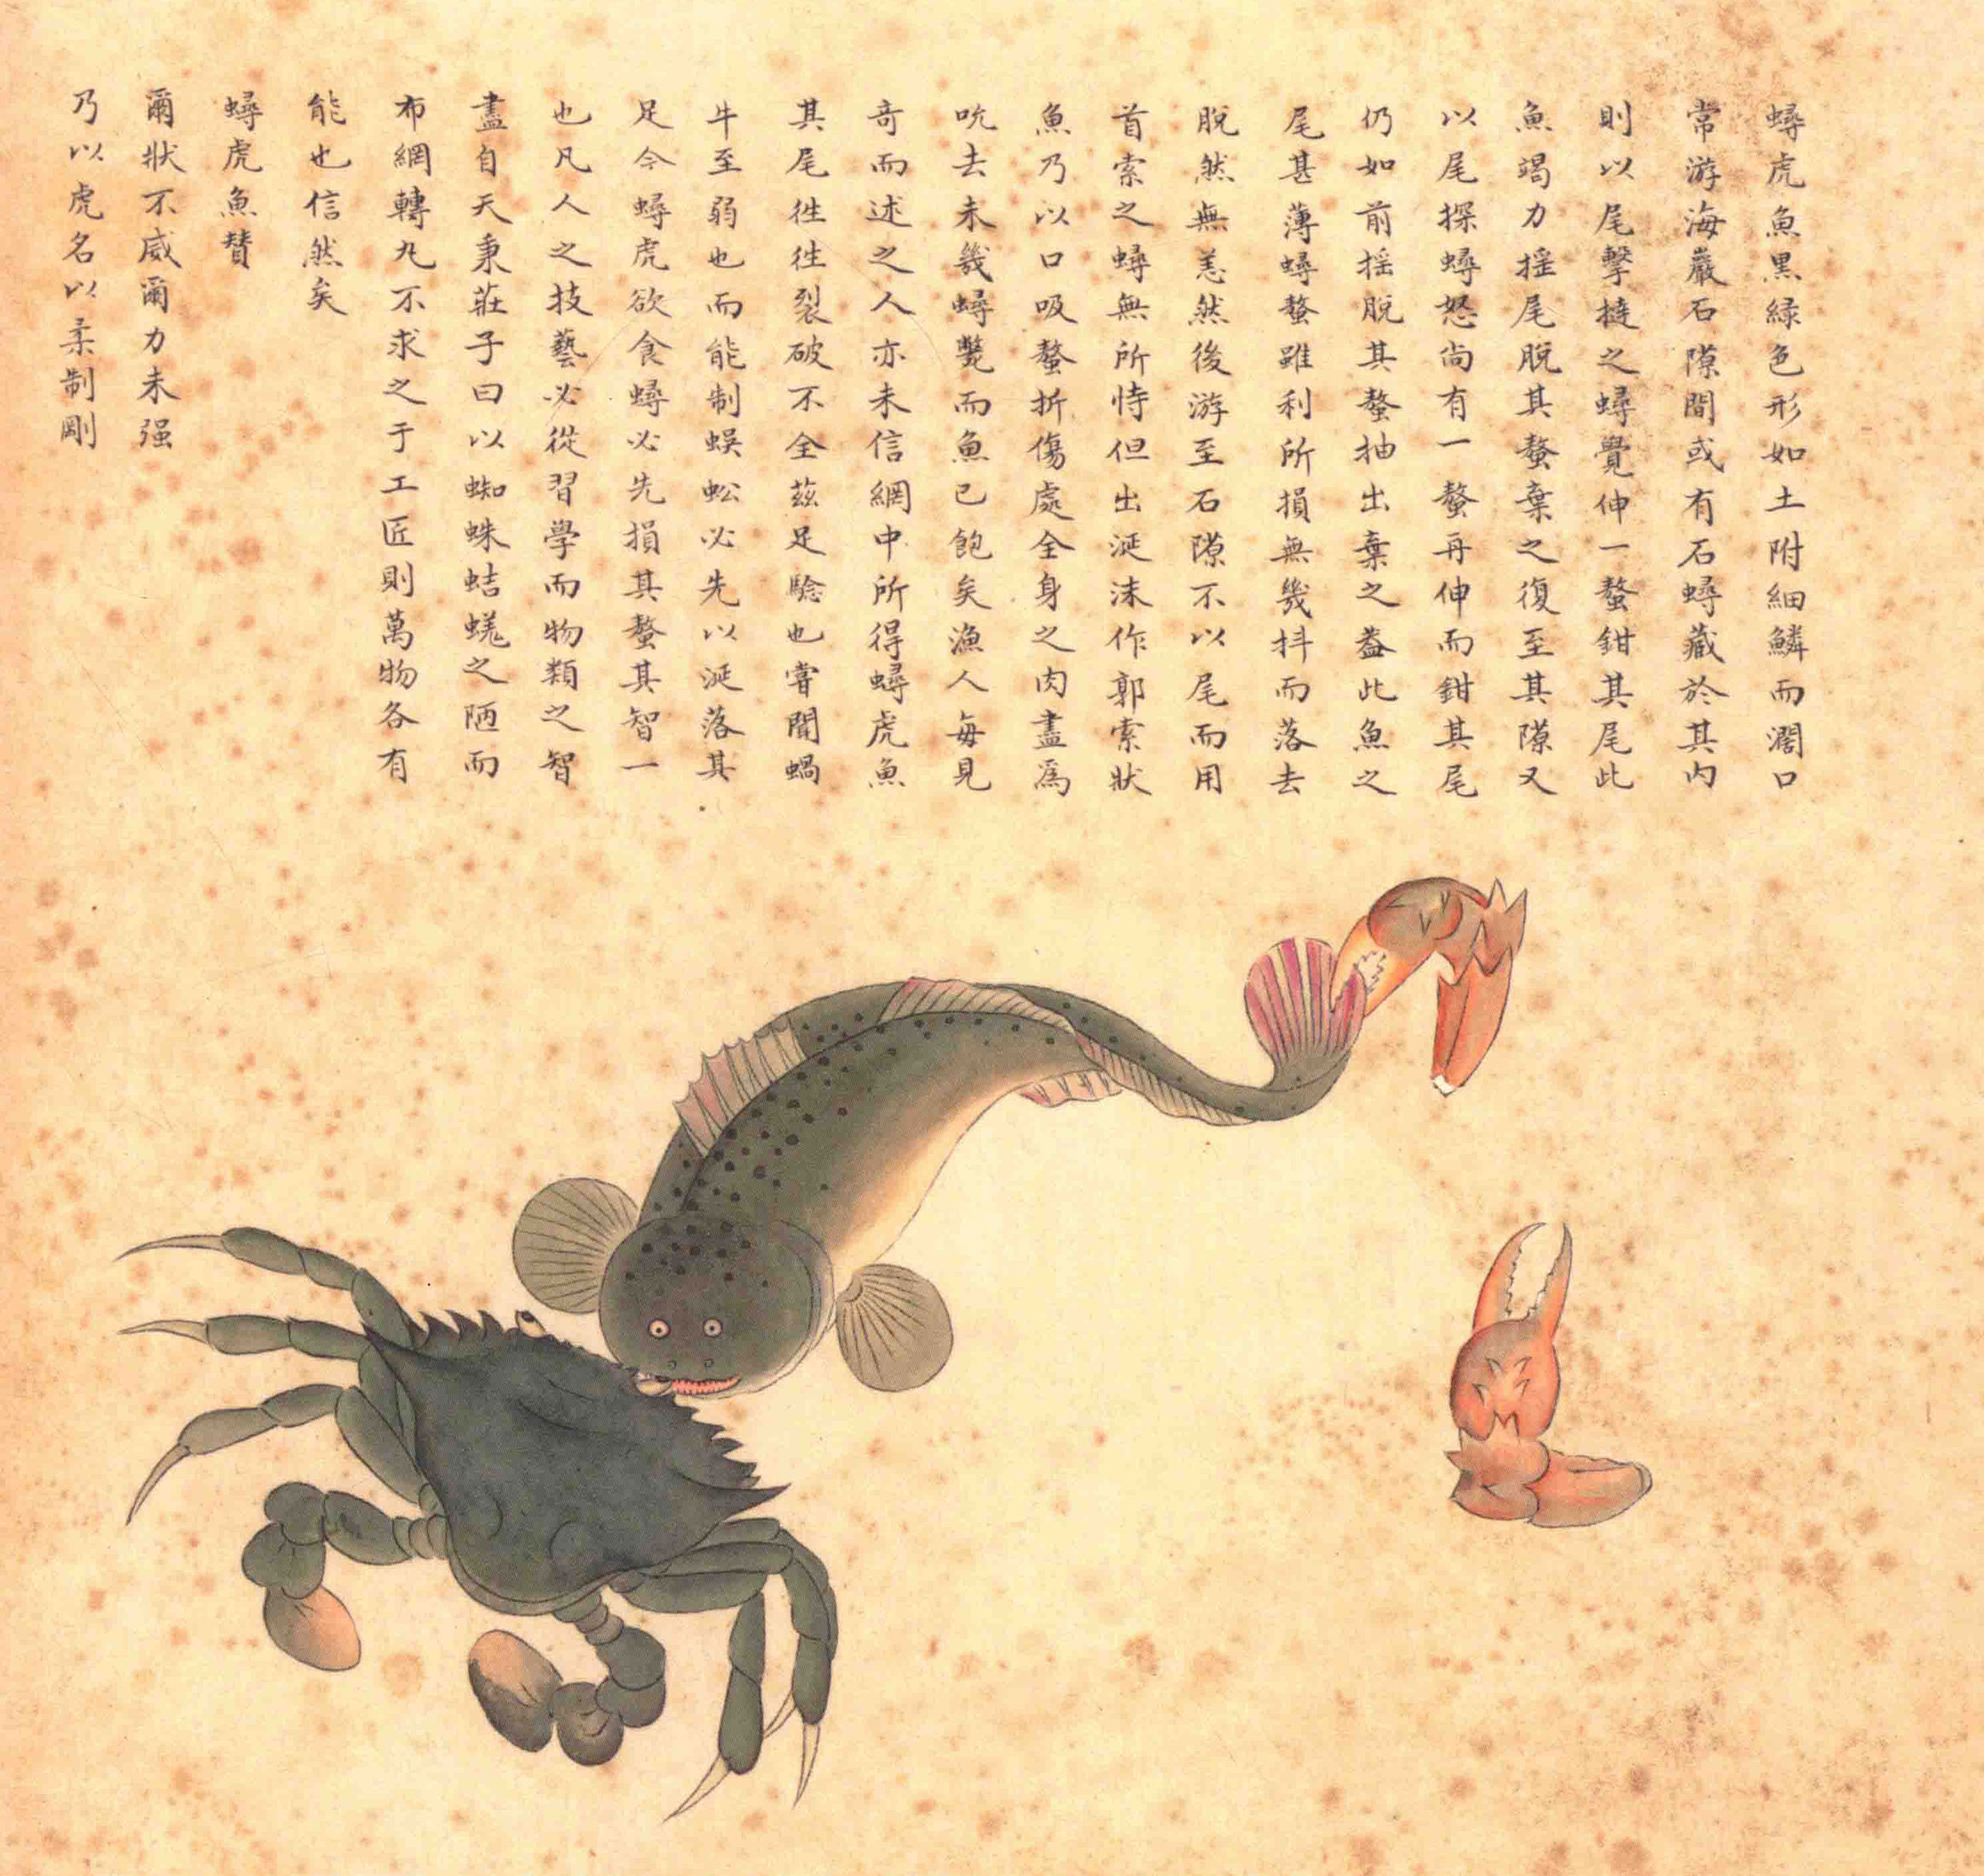 蟳虎魚黑綠色形如土附細鱗而濶口
常游海巖石隙間或有石蟳藏於其內
則以尾擊撻之蟳覺伸一螯鉗其尾此
魚竭力搖尾脫其螯棄之復至其隙又
以尾探蟳怒尚有一螯再伸而鉗其尾
仍如前搖脫其螯抽出棄之葢此魚之
尾甚薄蟳螯雖利所損無幾抖而落去
脫然無恙然後游至石隙不以尾而用
首索之蟳無所恃但出涎沫作郭索狀
魚乃以口吸螯折傷處全身之肉盡為
吮去未幾蟳斃而魚已飽矣漁人每見
奇而述之人亦未信網中所得蟳虎魚
其尾徃徃裂破不全茲足驗也嘗聞蝸
牛至弱也而能制蜈蚣必先以涎落其
足今蟳虎欲食蟳必先損其螯其智一
也凡人之技藝必從習學而物類之智
盡自天秉莊子曰以蜘蛛蛣蜣之陋而
布網轉丸不求之于工匠則萬物各有
能也信然矣
蟳虎魚贊
爾狀不威爾力未强
乃以虎名以柔制剛